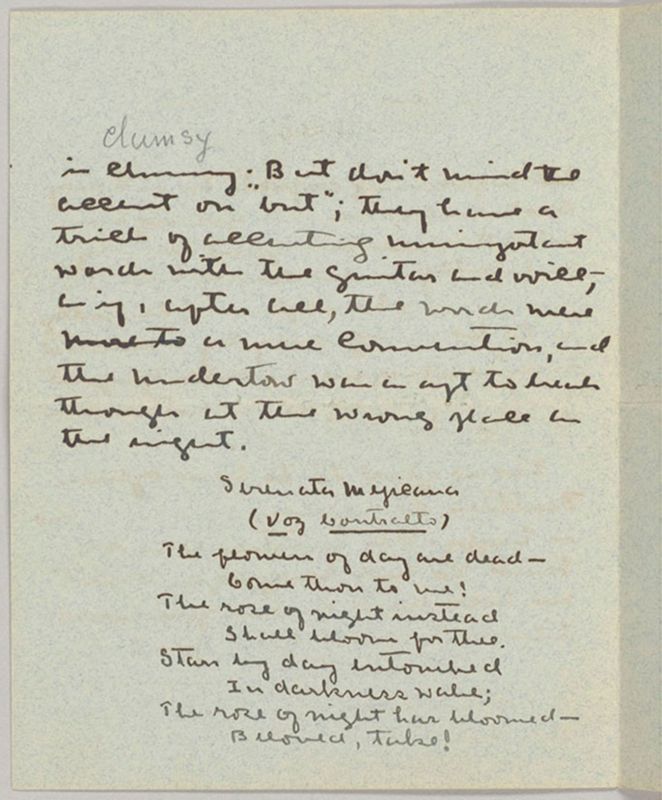 clumsy
is clumsy: But don't mind the
accent on "but"; they have a
trick of accenting unimportant
words with the guitar and voice,
as if, after all, the words were
more to a mere convention, and
the undertow was as apt to break
through at the wrong place as
the right.
Serenata Mejicana
(Voz Contralto)
The flowers of day are dead—
Come thou to me!
The rose of night instead
Shall bloom for thee.
Stars by day entombed
In darkness wake;
The rose of night has bloomed—
Beloved, take!